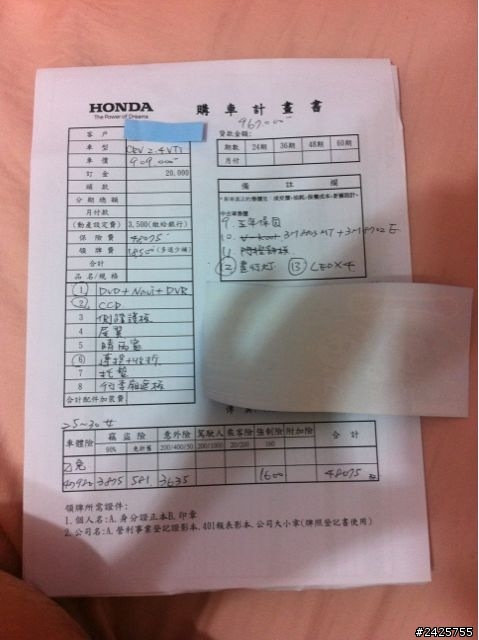 HONDA 購車計畫書
The Power of Dreams
967.000
客戶
車型 CRV 2.4 VTi
車價 909.000
訂金 20,000
頭款
分期總額
月付款
(動產設定費) 3,500 (繳給銀行)
保險費 48075
領牌費 1850 (多退少補)
合計
品名/規格
① DVD+Navi+DVR
② CCD
3 側踏護板
4 尾翼
5 晴雨窗
⑥
7 托盤
8 行李廂
合計配件加裝費
貸款金額:
期數 24期 36期 48期 60期
月付
備註欄
中古車換價
9. 五年保固
10. V-kool 3M 8803 MT + 3M 8702 E
11
⑫ 晝行灯 ⑬ LED×4
25~30 女
車體險 竊盜險 意外險 駕駛人 乘客險 強制險 附加險 合計
90% 免折舊 200/400/50 200/1000 20/200 160
乙免
3875 581 3635 1600 48075
領牌所需證件:
1. 個人名:A.身分證正本B.印章
2. 公司名:A.營利事業登記證影本、401報表影本、公司大小章(牌照登記書使用)
#2425755